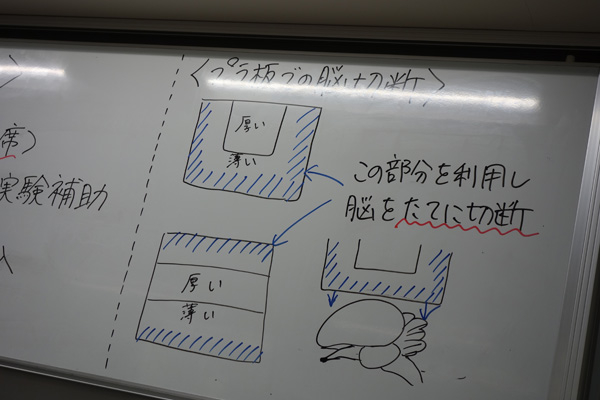 席)
実験補助
〈プラ板での脳の切断〉
厚い
薄い
この部分を利用し
脳をたてに切断
厚い
薄い